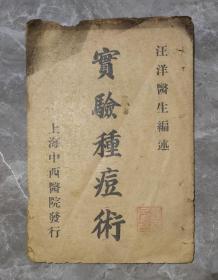 汪洋醫生編述
實驗種痘術
上海中西醫院發行